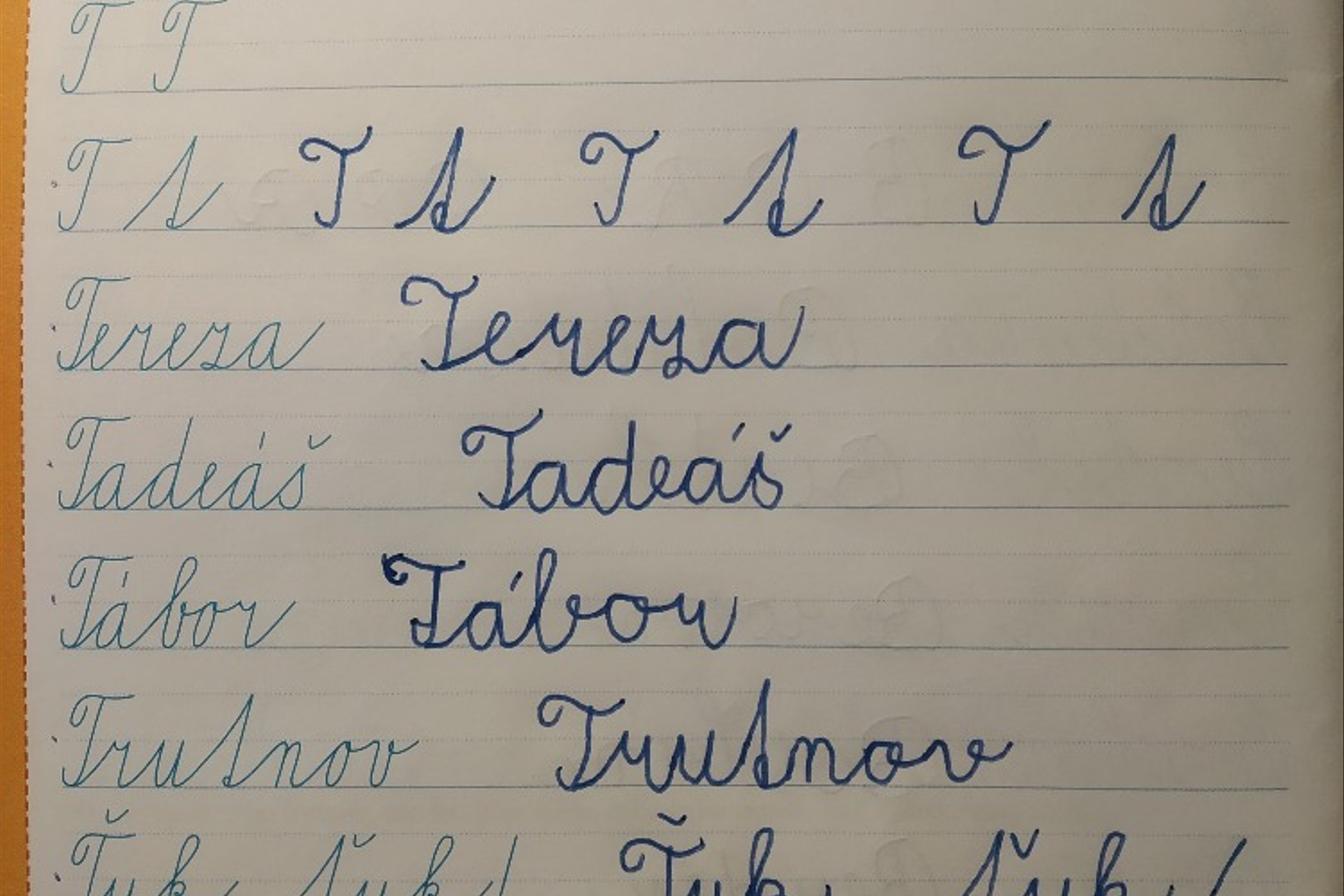 T T
T t T t T t T t
Tereza Tereza
Tadeáš Tadeáš
Tábor Tábor
Trutnov Trutnov
Ťuk, ťuk! Ťuk, ťuk!